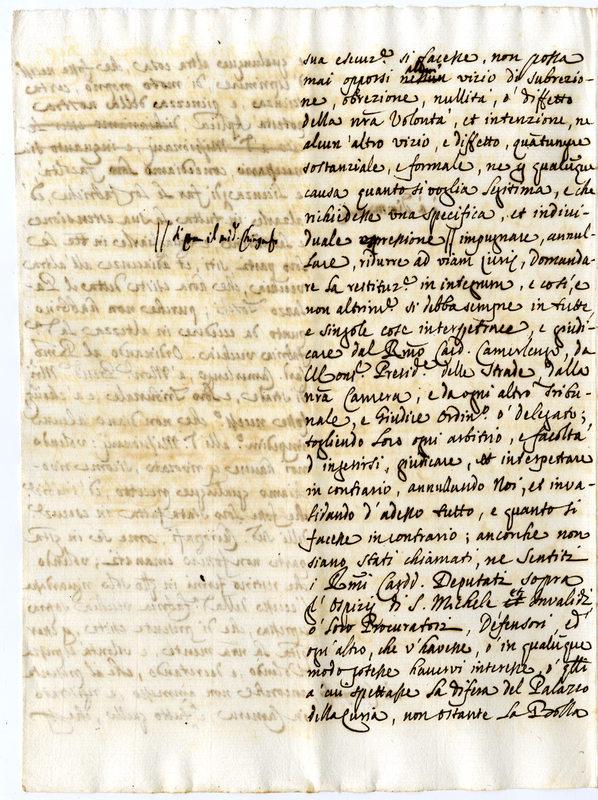 sua esecuz.e si facesse, non possa
mai opporsi alcun vizio di subrezio-
ne, obrezione, nullità, ò diffetto
della nr̃a Volontà, et intenzione, ne
alcun'altro vizio, e diffetto, quãtunque
sostanziale, e formale, ne p qualũque
causa quanto si voglia legitima, e che
richiedesse una specifica, et indivi-
duale espressione // impugnare, annul-
// di pm il md.o Chirografo
lare, ridurre ad viam Juris, domanda-
re la restituz.e in integrum, e così, e
non altrim.e si debba sempre in tutte,
e singole cose interpetrare, e giudi-
care dal R̃mo Card. Camerlengo, da
Mons.r Presid.e delle Strade dalla
nr̃a Camera, e da ogni altro Tribu-
nale, e Giudice Ordin.o ò delegato;
togliendo loro ogni arbitrio, e facoltà
d'ingerirsi, giudicare, et interpetrare
in contrario, annullando Noi, et inva-
lidando d'adesso tutto, e quanto si
facesse in contrario; ancorche non
siano stati chiamati, ne sentiti
i R̃mi Cardd. Deputati sopra
l'Ospizij di S. Michele et Invalidi
ò loro Procuratori, Difensori, ed
ogn'altro, che v'havesse, ò in qualũque
modo potesse havervi interesse, ò quelli
a cui spettasse la difesa del Palazzo
della Curia, non ostante la Bolla